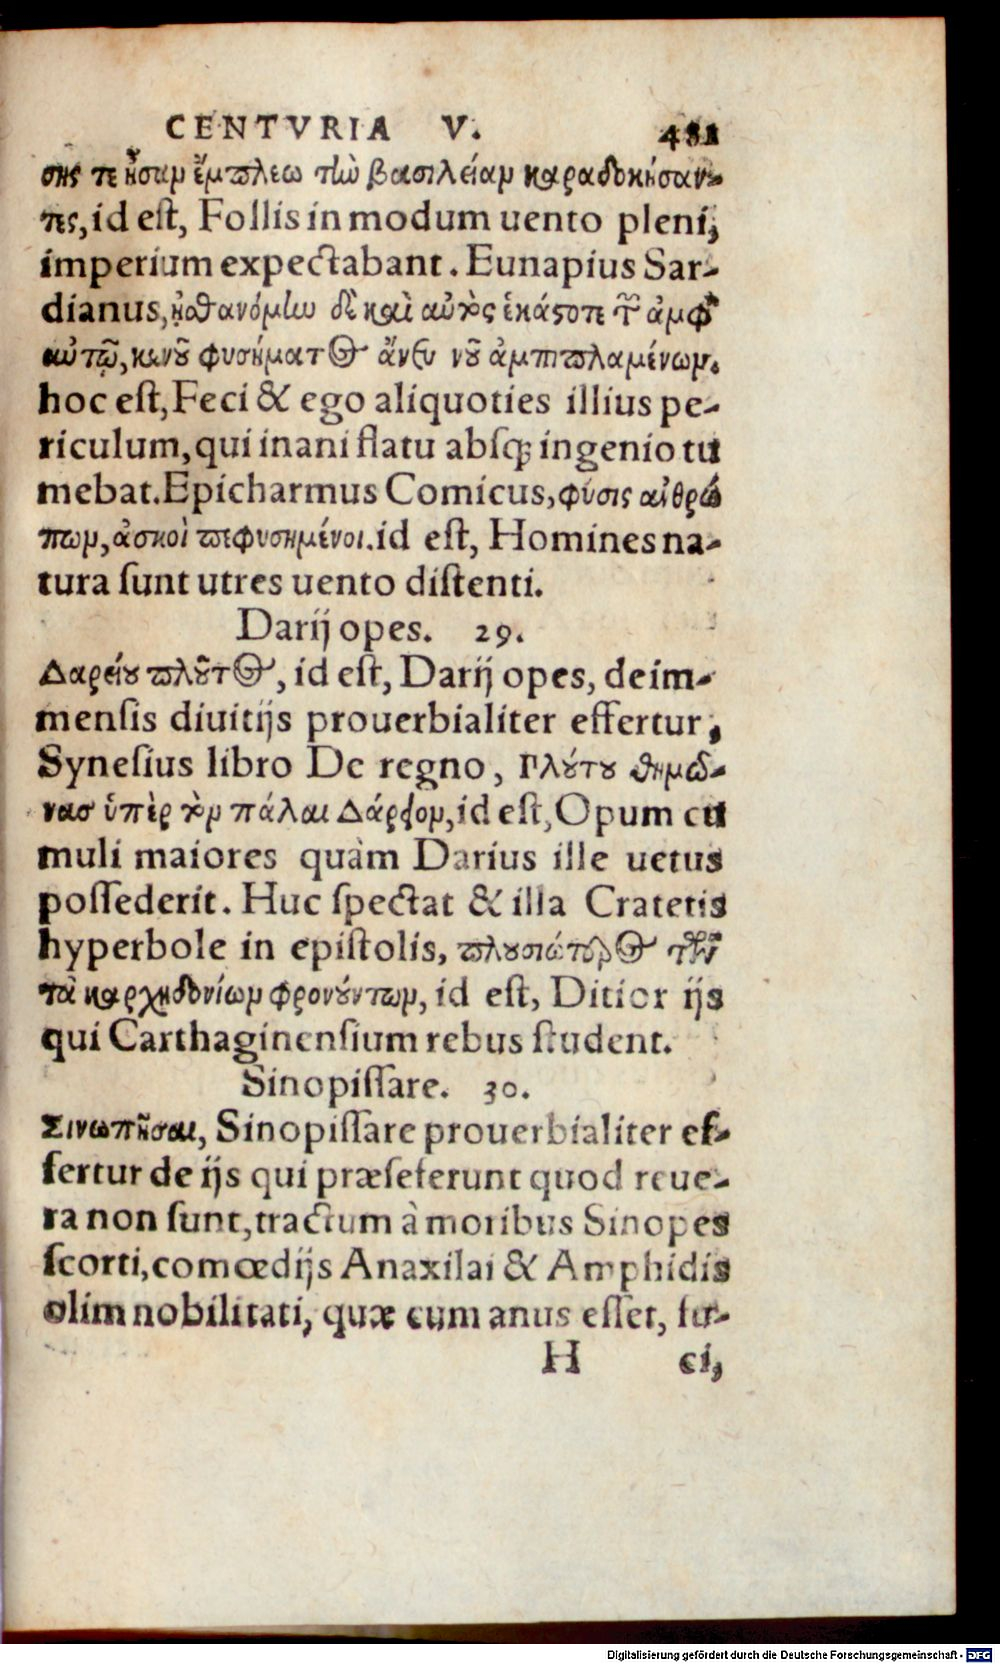 CENTVRIA V. 481
σης τε ἦσαν ἔμπλεω τὴν βασιλείαν καραδοκήσαν-
τες, id est, Follis in modum uento pleni,
imperium expectabant. Eunapius Sar-
dianus, ᾐσθανόμην δὲ καὶ αὐτὸς ἑκάστοτε τῶν ἀμφ'
αὐτῷ, κενοῦ φυσήματος ἄνευ νοῦ ἀμπιπλαμένων.
hoc est, Feci & ego aliquoties illius pe-
riculum, qui inani flatu absq; ingenio tu
mebat. Epicharmus Comicus, φύσις ἀνθρώ
πων, ἀσκοὶ πεφυσημένοι. id est, Homines na-
tura sunt utres uento distenti.
Darij opes. 29.
Δαρείου πλοῦτος, id est, Darij opes, de im-
mensis diuitijs prouerbialiter effertur,
Synesius libro De regno, Πλούτου θημῶ-
νας ὑπὲρ τὸν πάλαι Δάρειον, id est, Opum cu
muli maiores quàm Darius ille uetus
possederit. Huc spectat & illa Cratetis
hyperbole in epistolis, πλουσιώτερος τῶν
τὰ καρχηδονίων φρονούντων, id est, Ditior ijs
qui Carthaginensium rebus student.
Sinopissare. 30.
Σινωπῆσαι, Sinopissare prouerbialiter ef-
fertur de ijs qui præseferunt quod reue-
ra non sunt, tractum à moribus Sinopes
scorti, comœdijs Anaxilai & Amphidis
olim nobilitati, quæ cum anus esset, fu-
H ci,
Digitalisierung gefördert durch die Deutsche Forschungsgemeinschaft - DFG